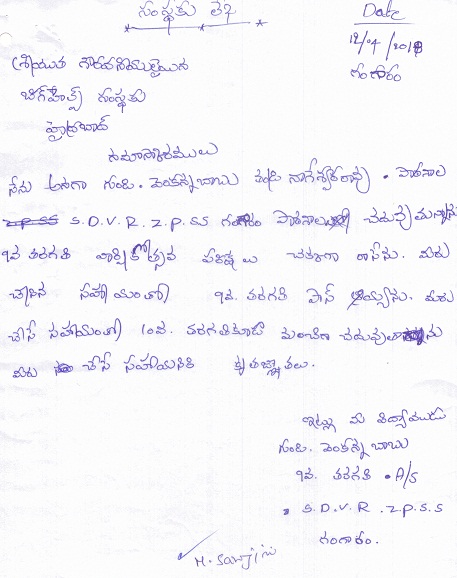 సంస్థకు లేఖ
Date
12/04/2018
గంగారం
శ్రీయుత గౌరవనీయులైన
బిగ్‌హెల్ప్ సంస్థకు
హైద్రాబాద్
నమాస్కారములు
నేను అనగా గుండి. వెంకన్నబాబు తండ్రి నాగేశ్వరరావు. పాఠశాల
S.D.V.R. Z.P.SS గంగారం పాఠశాలలో చదువుచున్నాను
9వ తరగతి వార్షికోత్సవ పరీక్షలు చక్కగా రాసేను. మీరు
చేసిన సహాయంతో 9వ. తరగతి పాస్ అయ్యాను. మీరు
చేసే సహాయంతో 10వ. తరగతికూడా మంచిగా చదువుతాను
మీరు చేసే సహాయనికి కృతజ్ఞాతలు.
ఇట్లు మీ విద్యార్థి
గుండి. వెంకన్న బాబు
9వ. తరగతి . A/S
S.D.V.R. Z.P.S.S
గంగారం.